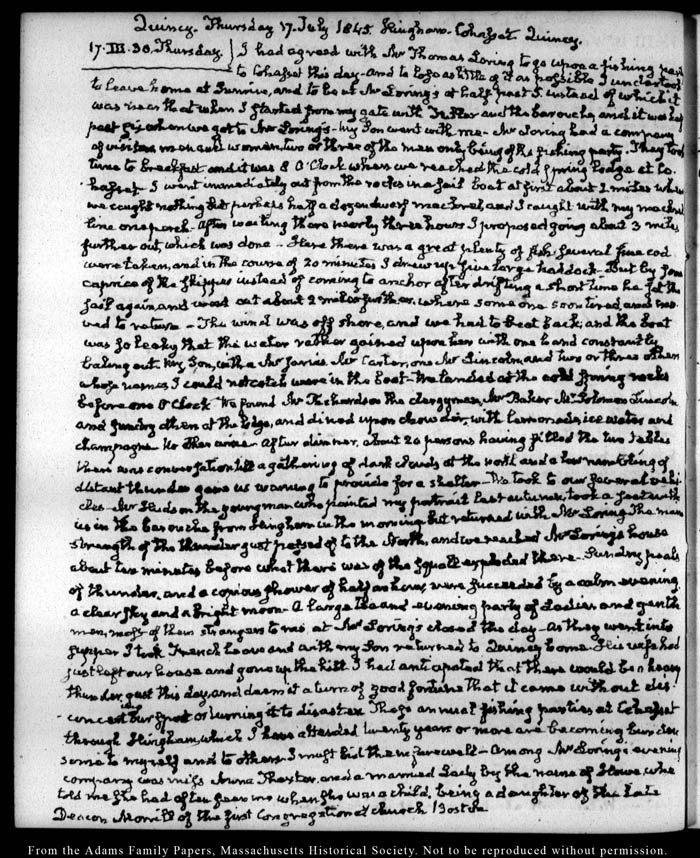 Quincy. Thursday 17. July 1845. Hingham. Cohasset. Quincy.
17. III. 30. Thursday. I had agreed with Mr Thomas Loring to go upon a fishing party
to Cohasset this day and to lose as little of it as possible I undertook
to leave home at Sunrise, and to be at Mr Loring's at half past 5. instead of which it
was near that when I started from my gate with and the barouche, and it was half
past six when we got to Mr Loring's. My Son went with me. Mr Loring had a company
of visitors men and women, two or three of the men only being of the fishing party. They took
time to breakfast and it was 8 O'Clock when we reached the cold Spring lodge at Co-
hasset. I went immediately out from the rocks in a sail boat at first about 2 miles where
we caught nothing but perhaps half a dozen dwarf mackerel, and I caught with my mackerel
line one perch. After waiting there nearly three hours I proposed going about 3 miles
further out, which was done. Here there was a great plenty of fish. Several fine cod
were taken, and in the course of 20 minutes I drew up five large haddock. But by some
caprice of the Skipper instead of coming to anchor after drifting a short time he set the
sail again and went out about 2 miles further, where some one soon tired, and mo-
ved to return. The wind was off shore, and we had to beat back, and the boat
was so leaky that the water rather gained upon her with one hand constantly
baling out. My Son, with a Mr Jarvis Mr Carter, one Mr Lincoln, and two or three others
whose names I could not catch were in the boat. We landed at the cold spring rocks
before one O'Clock. We found Mr Richardson the clergyman, Mr Baker Mr Solomon Lincoln
and sundry others at the lodge, and dined upon chowder, with lemonade, ice water and
champagne. No other wine. After dinner, about 20 persons having filled the two tables
there was conversation till a gathering of dark clouds at the north and a low rumbling of
distant thunder gave us warning to provide for a shelter. We took to our several vehi-
cles. Mr Hudson the young man who painted my portrait last autumn, took a seat with
us in the barouche from Hingham in the morning but returned with Mr Loring. The main
strength of the thunder gust passed off to the North, and we reached Mr Loring's house
about ten minutes before what there was of the squall exploded there. Sundry peals
of thunder, and a copious shower of half an hour, were succeeded by a calm evening
a clear sky and a bright moon. A large tea and evening party of Ladies and gentle-
men, most of them strangers to me, at Mr Loring's closed the day. As they went into
supper I took French leave and with my Son returned to Quincy home. His wife had
just left our house and gone up the hill. I had anticipated that there would be a heavy
thunder gust this day, and deem it a turn of good fortune that it came without dis-
concerting our sport or turning it to disaster. These annual fishing parties at Cohasset
through Hingham, which I have attended twenty years or more are becoming burden-
some to myself and to others. I must bid them farewell. Among Mr Loring's evening
company was Miss Anna Thaxter, and a married Lady by the name of Howe, who
told me she had often seen me when she was a child, being a daughter of the late
Deacon Morrill of the first Congregational church Boston
From the Adams Family Papers, Massachusetts Historical Society. Not to be reproduced without permission.